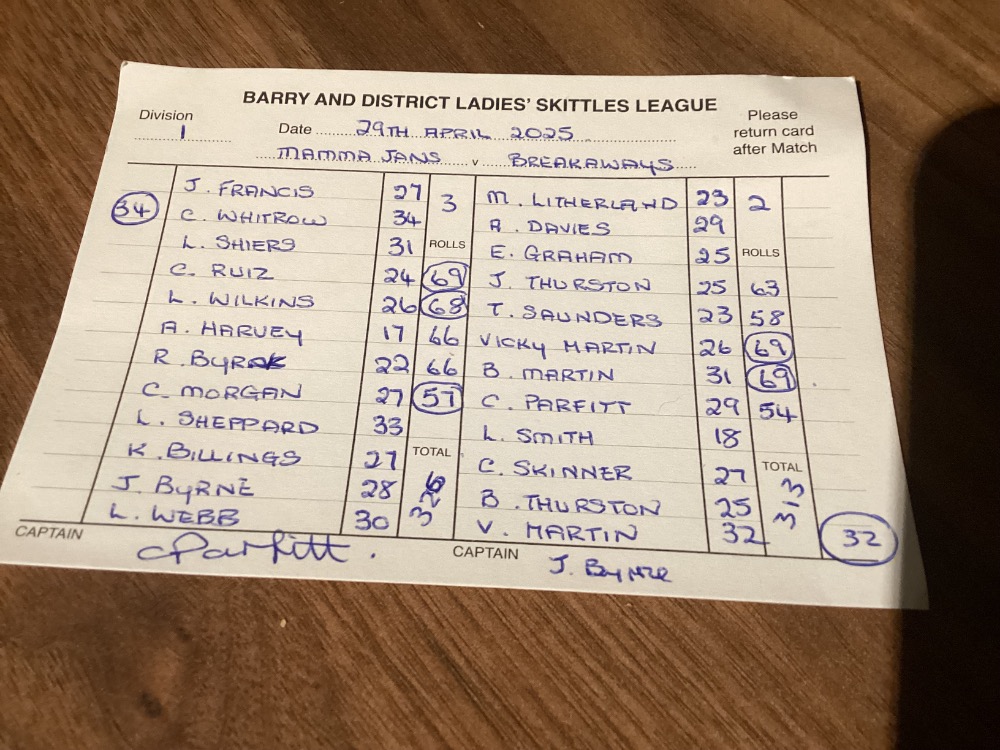 BARRY AND DISTRICT LADIES' SKITTLES LEAGUE
Division 1
Date 29TH APRIL 2025
Please return card after Match
MAMMA JANS v BREAKAWAYS
J. FRANCIS 27 3 M. LITHERLAND 23 2
34 C. WHITROW 34 A. DAVIES 29
L. SHIERS 31 ROLLS E. GRAHAM 25 ROLLS
C. RUIZ 24 69 J. THURSTON 25 63
L. WILKINS 26 68 T. SAUNDERS 23 58
A. HARVEY 17 66 VICKY MARTIN 26 69
R. 22 66 B. MARTIN 31 69
C. MORGAN 27 57 C. PARFITT 29 54
L. SHEPPARD 33 L. SMITH 18
K. BILLINGS 27 TOTAL C. SKINNER 27 TOTAL
J. BYRNE 28 326 B. THURSTON 25 313
L. WEBB 30 V. MARTIN 32 32
CAPTAIN CParfitt. CAPTAIN J. Byrne